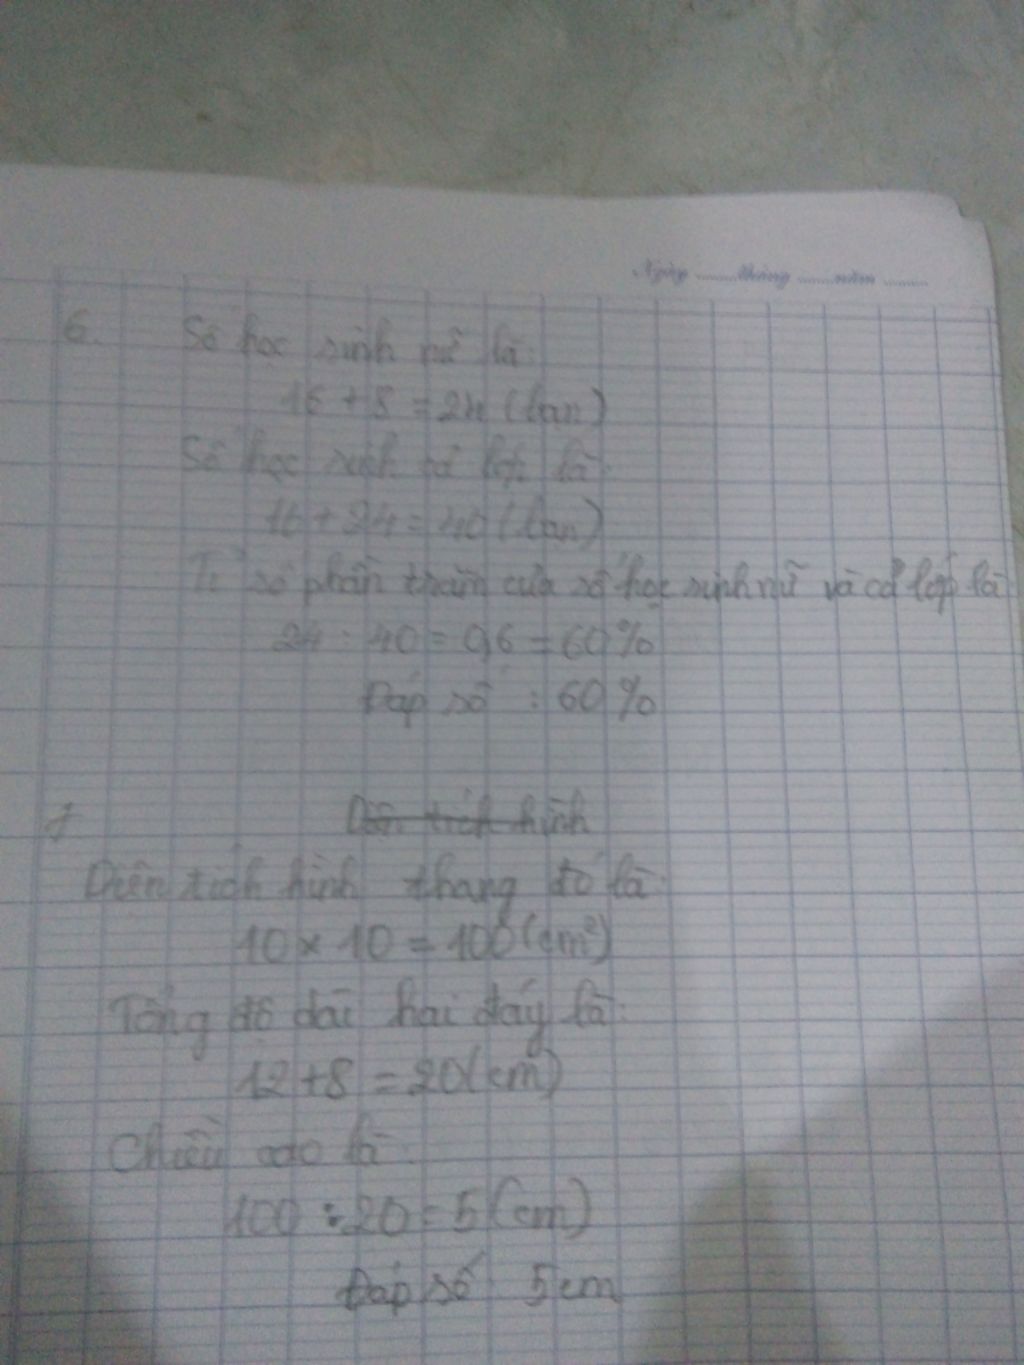 Ngày ........tháng .......năm ........
6. Số học sinh nữ là:
16 + 8 = 24 (bạn)
Số học sinh cả lớp là:
16 + 24 = 40 (bạn)
Tỉ số phần trăm của số học sinh nữ và cả lớp là
24 : 40 = 0,6 = 60%
Đáp số : 60%
7 Diện tích hình
Diện tích hình thang đó là:
10 × 10 = 100 (cm²)
Tổng độ dài hai đáy là:
12 + 8 = 20 (cm)
Chiều cao là:
100 : 20 = 5 (cm)
Đáp số: 5cm